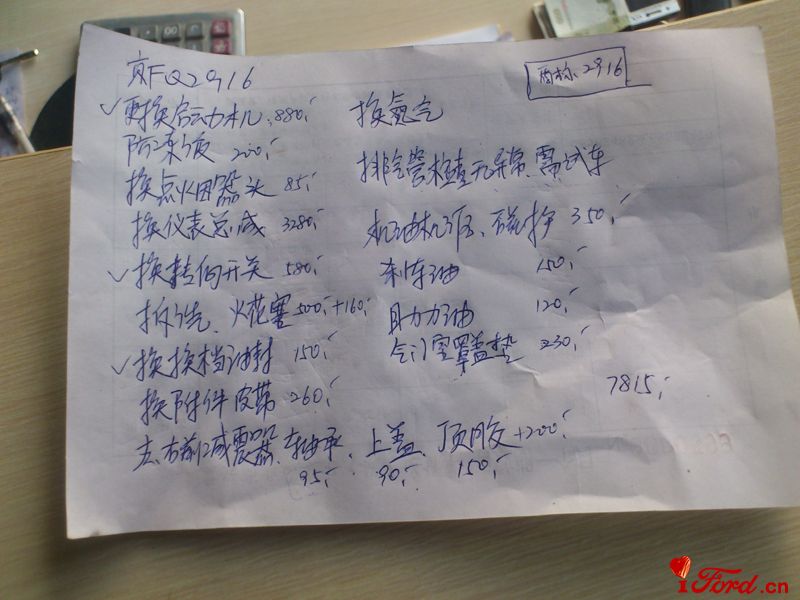 京FQ2916
西标2916
更换启动机 880
防冻液 200
换点火田器头 85
换仪表总成 3280
换转向开关 580
拆洗、火花塞 500 +160
换换档油封 150
换附件皮带 260
左、右前减震器、轴承、上盖、顶胶 +200
95 90 150
换氮气
排气管检查无异常、需试车
机油机滤、 350
刹车油 150
助力油 120
气门室罩盖垫 230
7815
iFord.cn